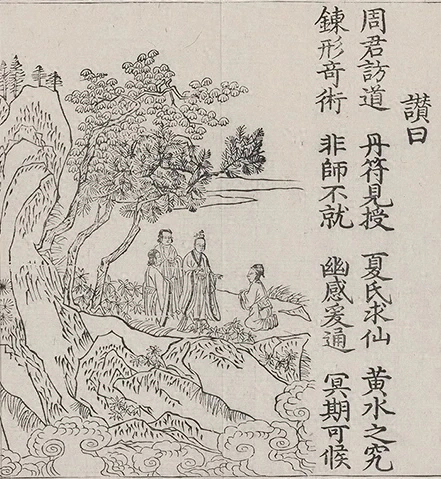 讃曰
周君訪道 丹符見授 夏氏求仙 黄水之究
錬形奇術 非師不就 幽感爰通 冥期可候